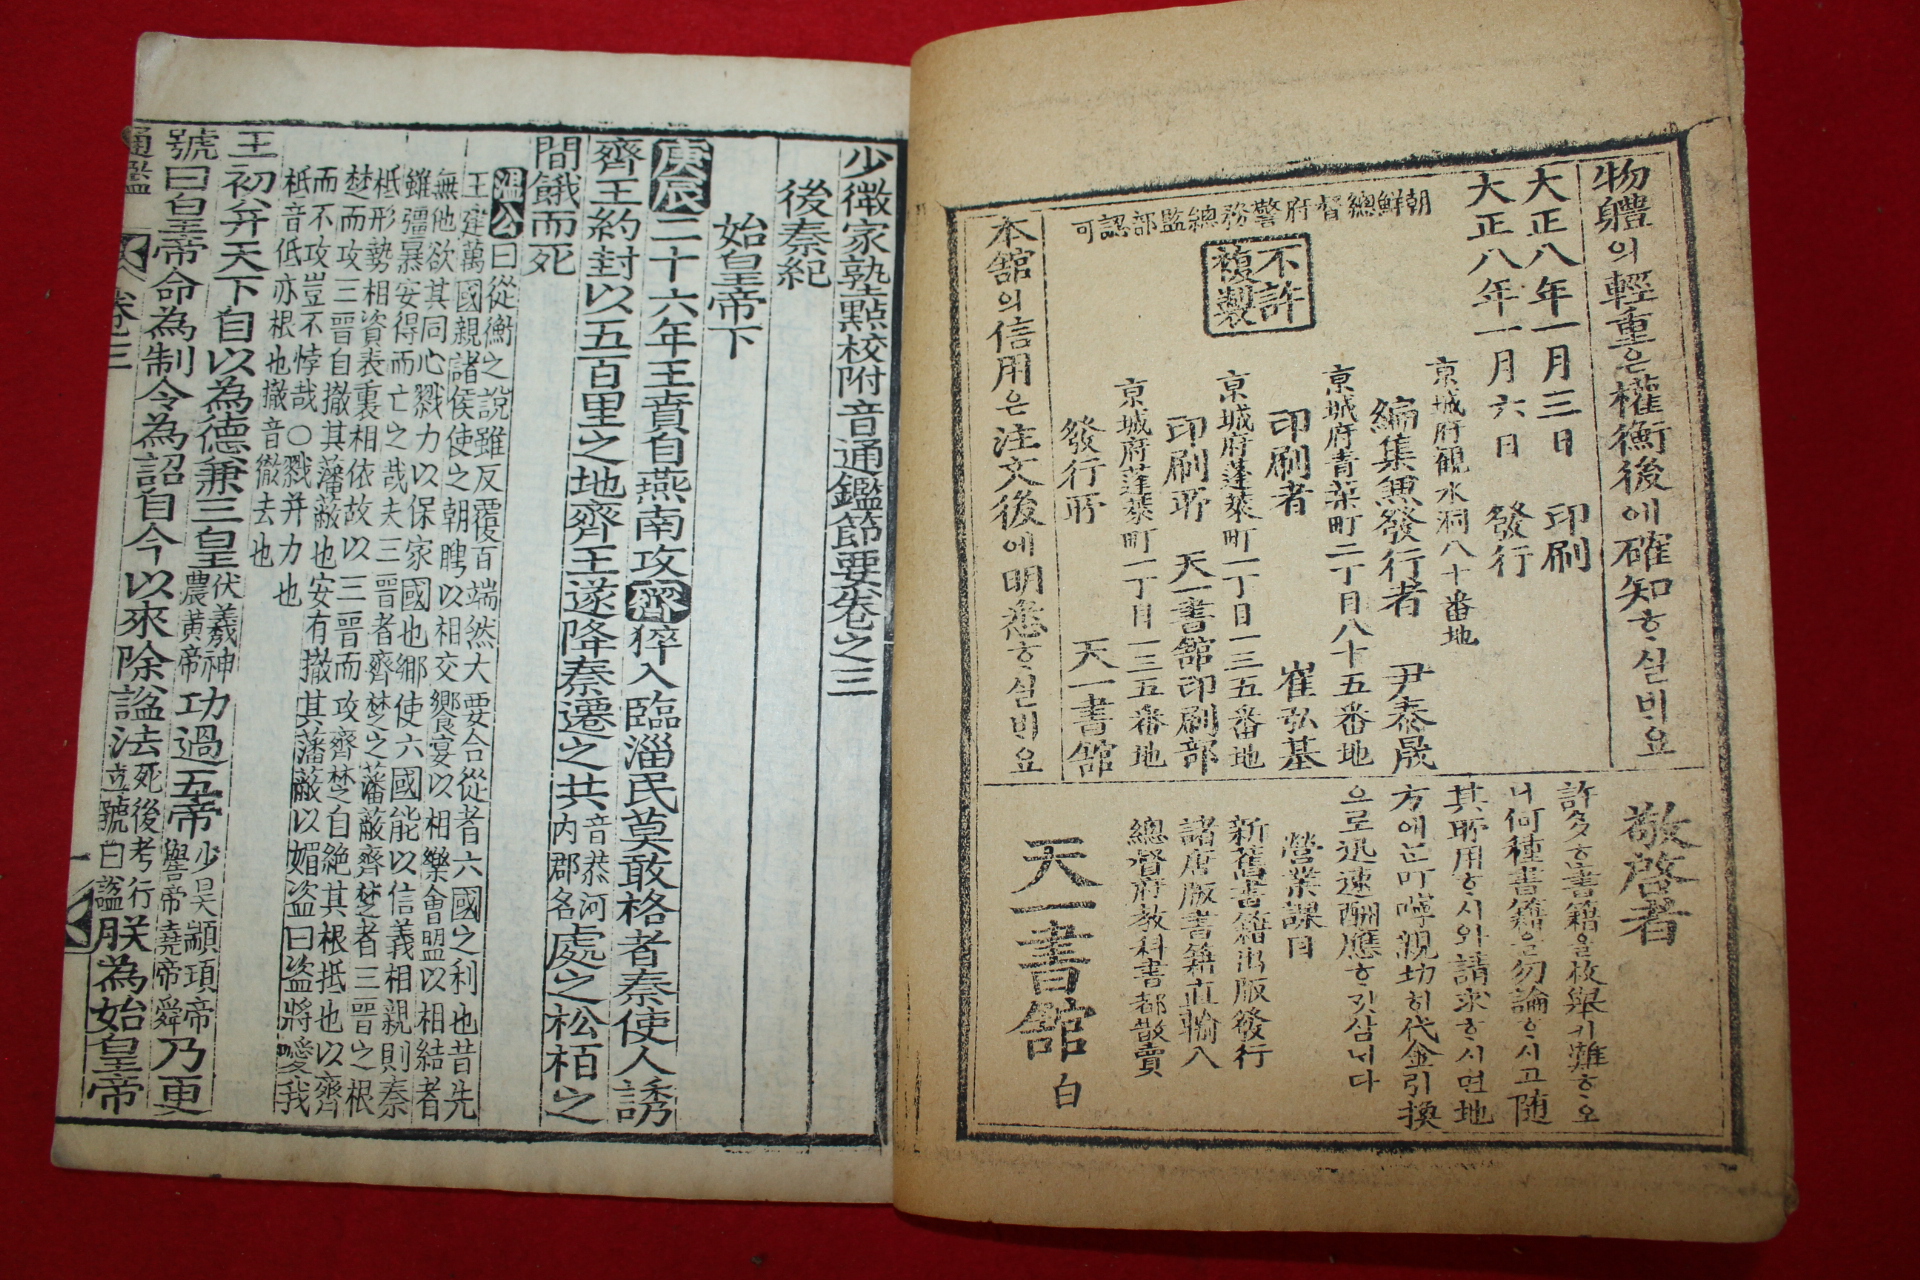 物軆의輕重은權衡後에確知ᄒᆞ실비요
大正八年一月三日 印刷
大正八年一月六日 發行
朝鮮總督府警務總監部認可
不許
複製
京城府觀水洞八十番地
編集兼發行者 尹泰晟
京城府青葉町二丁目八十五番地
印刷者 崔弘基
京城府蓬萊町一丁目一三五番地
印刷所 天一書舘印刷部
京城府蓬萊町一丁目一三五番地
發行所 天一書舘
本舘의信用은注文後에明悉ᄒᆞ실비요
敬啓者
許多ᄒᆞᆫ書籍을枚擧키難ᄒᆞ오
니何種書籍을勿論ᄒᆞ시고随
其所用ᄒᆞ시와請求ᄒᆞ시면地
方에ᄂᆞᆫ叮嚀親切히代金引換
으로迅速酬應ᄒᆞ깃삼ᄂᆡ다
營業課目
新舊書籍出版發行
諸唐版書籍直輸入
總督府敎科書都散賣
天一書舘 白
少微家塾點校附音通鑑節要卷之三
後秦紀
始皇帝下
庚辰二十六年王賁自燕南攻齊猝入臨淄民莫敢格者秦使人誘
齊王約封以五百里之地齊王遂降秦遷之共音恭河內郡名處之松栢之
間餓而死
溫公曰從衡之說雖反覆百端然大要合從者六國之利也昔先
王建萬國親諸侯使之朝聘以相交饗宴以相樂會盟以相結者
無他欲其同心戮力以保家國也鄕使六國能以信義相親則秦
雖彊暴安得而亡之哉夫三晉者齊楚之藩蔽齊楚者三晉之根
柢形勢相資表裏相依故以三晉而攻齊楚自絶其根柢也以齊
楚而攻三晉自撤其藩蔽也安有撤其藩蔽以媚盜曰盜將愛我
而不攻豈不悖哉○戮并力也
柢音低亦根也撤音徹去也
王初并天下自以為德兼三皇伏羲神農黃帝功過五帝少昊顓頊帝嚳帝堯帝舜乃更
號曰皇帝命為制令為詔自今以來除諡法死後考行立號曰諡朕為始皇帝
通鑑 卷三